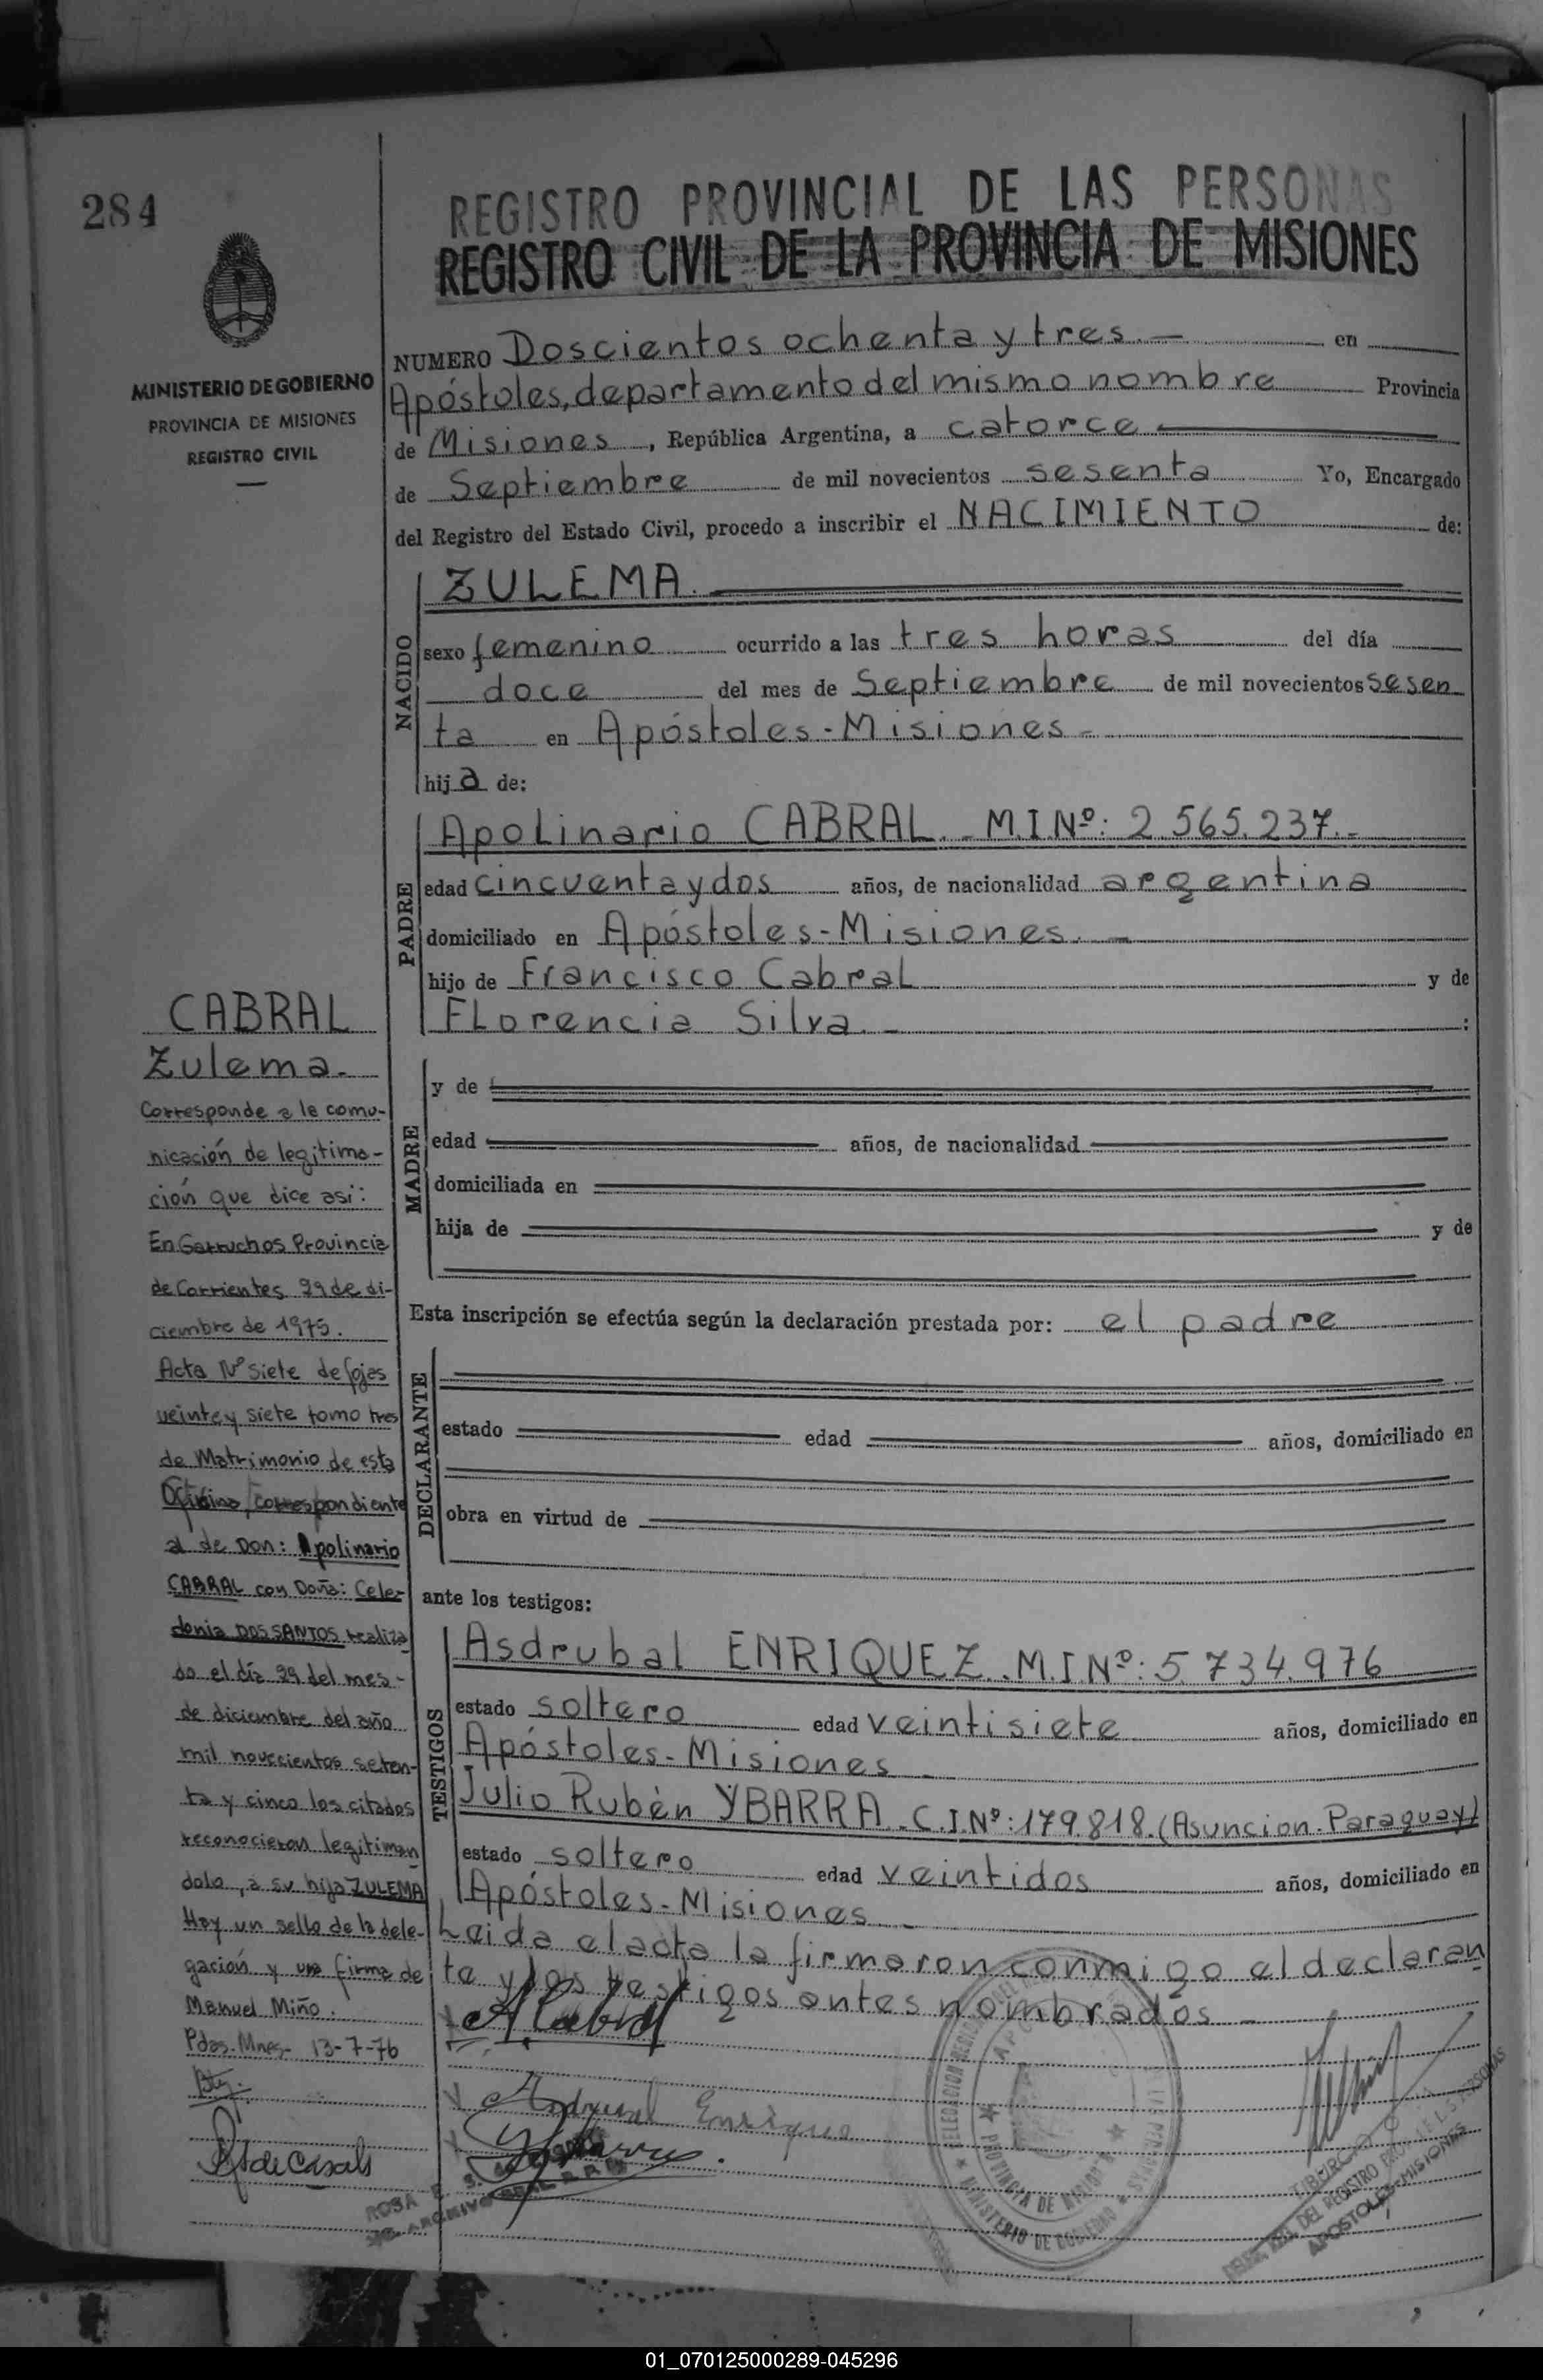 284
REGISTRO PROVINCIAL DE LAS PERSONAS
REGISTRO CIVIL DE LA PROVINCIA DE MISIONES
MINISTERIO DE GOBIERNO
PROVINCIA DE MISIONES
REGISTRO CIVIL
NUMERO Doscientos ochenta y tres.- en
Apóstoles, departamento del mismo nombre Provincia
de Misiones, República Argentina, a catorce
de Septiembre de mil novecientos sesenta Yo, Encargado
del Registro del Estado Civil, procedo a inscribir el NACIMIENTO de:
NACIDO
ZULEMA.
sexo femenino ocurrido a las tres horas del día
doce del mes de Septiembre de mil novecientos sesen
ta en Apóstoles-Misiones-
hija de:
PADRE
Apolinario CABRAL.- M.I.Nº: 2.565.237.-
edad cincuenta y dos años, de nacionalidad argentina
domiciliado en Apóstoles-Misiones.-
hijo de Francisco Cabral y de
Florencia Silva.- :
MADRE
y de
edad años, de nacionalidad
domiciliada en
hija de y de
Esta inscripción se efectúa según la declaración prestada por: el padre
DECLARANTE
estado edad años, domiciliado en
obra en virtud de
ante los testigos:
TESTIGOS
Asdrubal ENRIQUEZ.. M.I.Nº: 5.734.976
estado soltero edad veintisiete años, domiciliado en
Apóstoles-Misiones -
Julio Rubèn YBARRA.- C.I.Nº: 179.818.(Asuncion-Paraguay)
estado soltero edad veintidos años, domiciliado en
Apóstoles-Misiones.-
Leida el acta la firmaron conmigo el declaran
te y los testigos antes nombrados.-
A Cabral
Asdrubal Enriquez
Ybarra
CABRAL
Zulema.
Corresponde a la comu-
nicación de legitima-
ción que dice así:
En Garruchos Provincia
de Corrientes 29 de di-
ciembre de 1975.
Acta Nº siete de fojas
veinte y siete tomo tres
de Matrimonio de esta
Oficina, correspondiente
al de Don: Apolinario
CABRAL con Doña: Cele-
donia DOS SANTOS realiza
do el día 29 del mes-
de diciembre del año
mil novecientos seten-
ta y cinco los citados
reconocieron legitiman
dola, a su hija ZULEMA
Hay un sello de la dele-
gación y una firma de
Manuel Miño.
Pdas. Mnes- 13-7-76
ROSA E. S.
ARCHIVO GRAL.
DELEGACION
APOSTOLES
PROVINCIA DE MISIONES
MINISTERIO DE GOBIERNO
TIBURCIO
DEL REGISTRO PROV. DE LAS PERSONAS
APOSTOLES-MISIONES
01_070125000289-045296